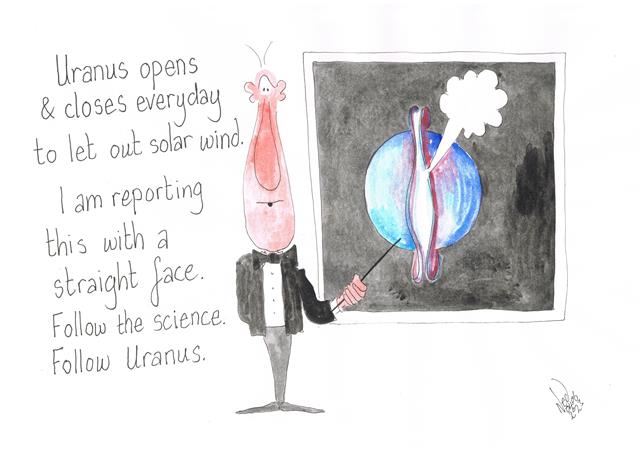 Uranus opens
& closes everyday
to let out solar wind.
I am reporting
this with a
straight face.
Follow the science.
Follow Uranus.